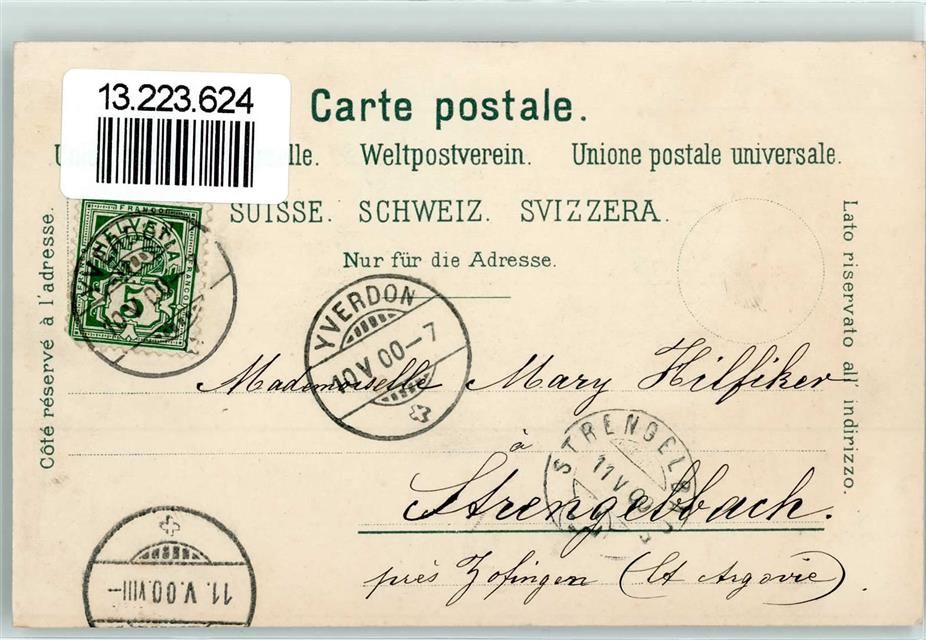 13.223.624
Carte postale.
lle. Weltpostverein. Unione postale universale.
SUISSE. SCHWEIZ. SVIZZERA.
Nur für die Adresse.
Côté réservé à l'adresse.
Lato riservato all' indirizzo.
FRANCO
HELVETIA
FRANCO
5
YVERDON
10 V 00-7
Mademoiselle Mary Hilfiker
à
STRENGELB
11 V 00
Strengelbbach.
près Zofingen (Ct Argovie)
11. V. 00. VIII–